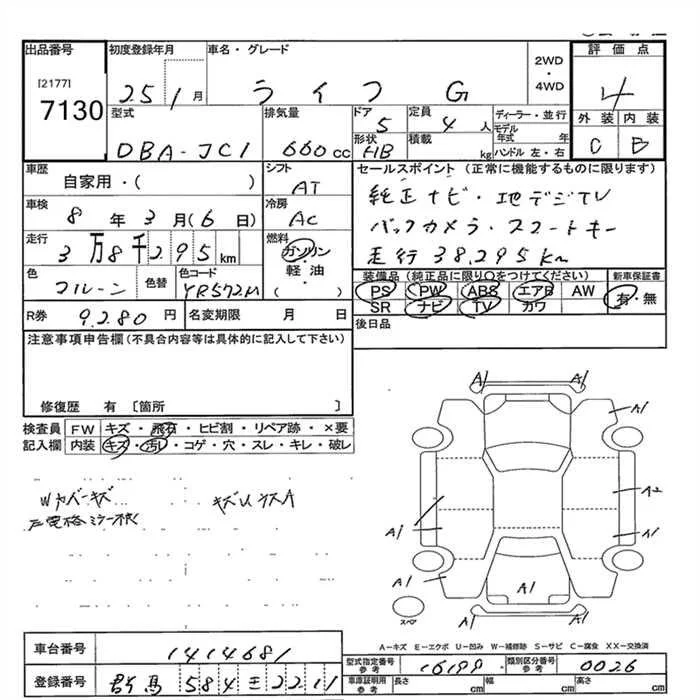 出品番号
[2177]
7130
初度登録年月
25 1月
車名・グレード
ライフ G
2WD
・
4WD
評価点
4
外装 内装
C B
型式
DBA-JC1
排気量
660cc
ドア
5
形状
HB
定員
4人
積載
kg
ディーラー・並行
モデル
年式 年
ハンドル 左・右
車歴
自家用・( )
シフト
AT
車検
8年3月(6日)
冷房
AC
走行
3万8千295km
燃料
ガソリン
・
軽油
・
( )
色
色替
色コード
YR572M
R券
9280円
名変期限 月 日
セールスポイント (正常に機能するものに限ります)
純正ナビ・地デジTV
バックカメラ・スマートキー
走行38,295km
装備品(純正品に限り○をつけてください)
PS PW ABS エアB AW
SR ナビ TV カワ
新車保証書
有・無
後日品
注意事項申告欄(不具合内容等は具体的に記入して下さい)
修復歴 有 〔箇所 〕
検査員
記入欄
FW キズ・飛石・ヒビ割・リペア跡・×要
内装 キズ・汚れ・コゲ・穴・スレ・キレ・破レ
Wカバーキズ
A1 A1
A1
A2
A1
A1
A1
A1
スペア
A-キズ E-エクボ U-凹み W-補修跡 S-サビ C-腐食 XX-交換済
車台番号
1414681
登録番号
群馬 584 2211
型式指定番号
参考
16199
類別区分番号
参考
0026
車庫証明用
参考
長さ cm
幅 cm
高さ cm